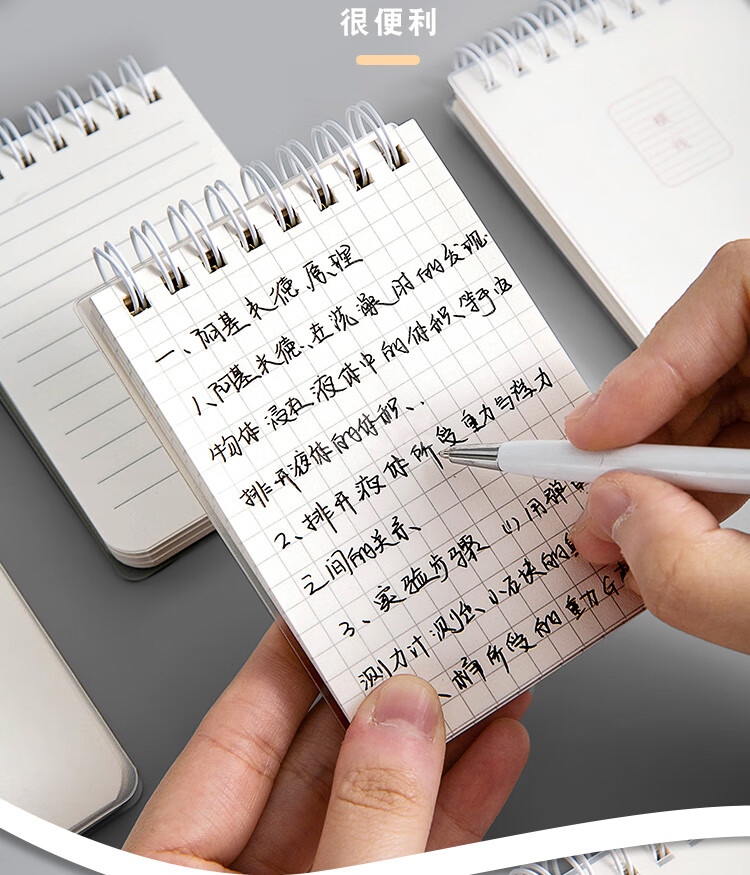 很便利
横线
一、阿基米德原理
1、阿基米德、在洗澡时的发现.
物体浸在液体中的体积等于
排开液体的体积、.
2、排开液体所受重力与浮力
之间的关系
3、实验步骤 (1)用弹
测力计测出、小石块的
、桶所受的重力G